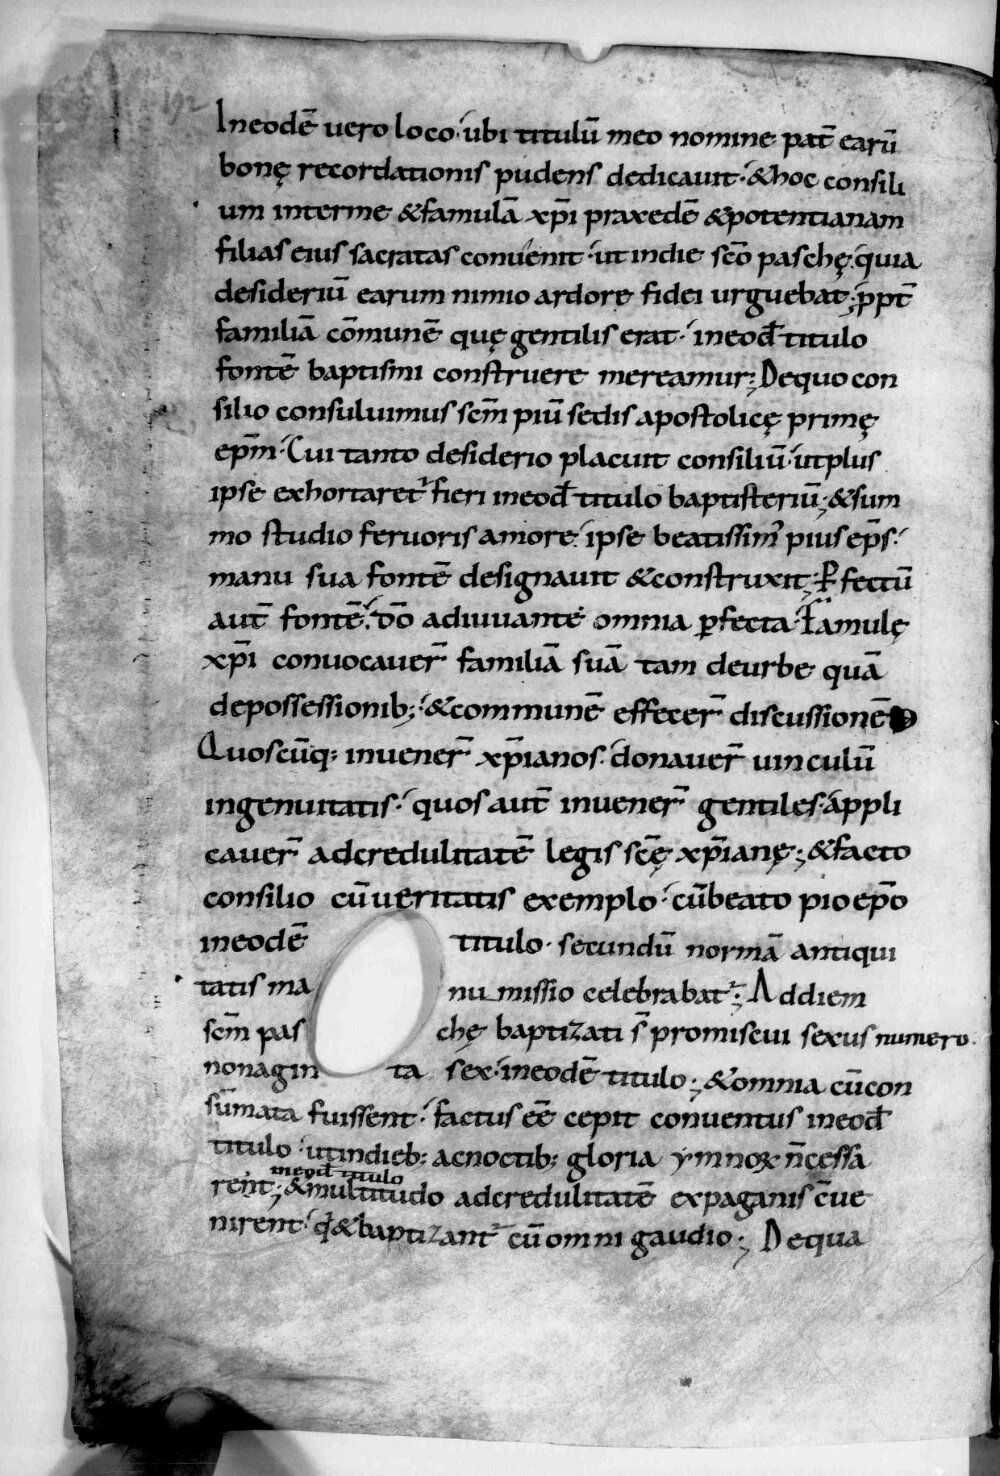 192
Ineodē uero loco· ubi titulū meo nomine pat̄ earū
bonę recordationis pudens dedicauit· &hoc consili
um interme &famulā xp̄i praxedē &potentianam
filias eius sacratas conuenit· ut indie sc̄o paschę· quia
desideriū earum nimio ardore fidei urguebat; ꝓpt̄
familiā cōmunē quę gentilis erat· ineod̄ titulo
fontē baptismi construere mereamur; Dequo con
silio consuluimus sc̄m piū sedis apostolicę primę
ep̄m· Cui tanto desiderio placuit consiliū· utplus
ipse exhortaret᷒ fieri ineod̄ titulo baptisteriū; &sum
mo studio feruoris amore· ipse beatissim᷒ pius ep̄s·
manu sua fontē designauit &construxit; Ꝑfectū
aut̄ fontē· dō adiuuante omnia ꝑfecta· Famulę
xp̄i conuocauer̄ familiā suā tam deurbe quā
depossessionib;· &communē effecer̄ discussionē
Quoscūq; inuener̄ xp̄ianos· donauer̄ uinculū
ingenuitatis· quos aut̄ inuener̄ gentiles· appli
cauer̄ adcredulitatē legis sc̄ę xp̄ianę; &facto
consilio cūueritatis exemplo· cūbeato pio ep̄o
ineodē titulo· secundū normā antiqui
tatis manumissio celebrabat᷒; Addiem
sc̄m paschę baptizati s̄ promiscui sexus numero
nonaginta sex· ineodē titulo; &omnia cūcon
sūmata fuissent· factus eē cepit conuentus ineod̄
titulo· utindieb; acnoctib; gloria ymnoꝝ n̄cessa
rent; &ineod̄ titulo multitudo adcredulitatē expaganis c̄ue
nirent· q̄&baptizant᷒ cūomni gaudio; Dequa